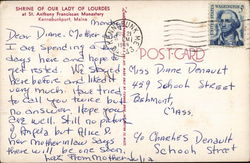 SHRINE OF OUR LADY OF LOURDES
at St. Anthony Franciscan Monastery
Kennebunkport, Maine
Monday
Dear Diane. Mother &
I are spending a few
days here and hope to
get rested. We stayed
here before and liked it
very much. Have tried
to call you twice but
no answer. Hope you
are well. Still no picture
of Angela but Alice P.
her mother in law says
there will be one soon.
POST CARD
Miss Diane Denault
489 School Street
Belmont,
Mass.
c/o Charles Denault
School Street